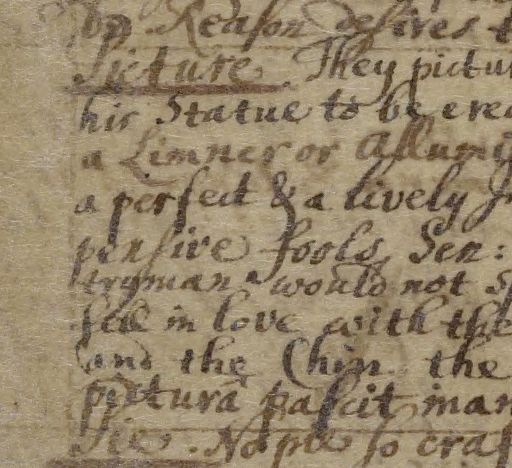 Reason desires
Picture. They pictu
his Statue to be erec
a Limner or Allumi
a perfect & a lively
pensive fools, Sen:
tryman would not sp
fell in love with the
and the Chin the
pictura pascit inan
so